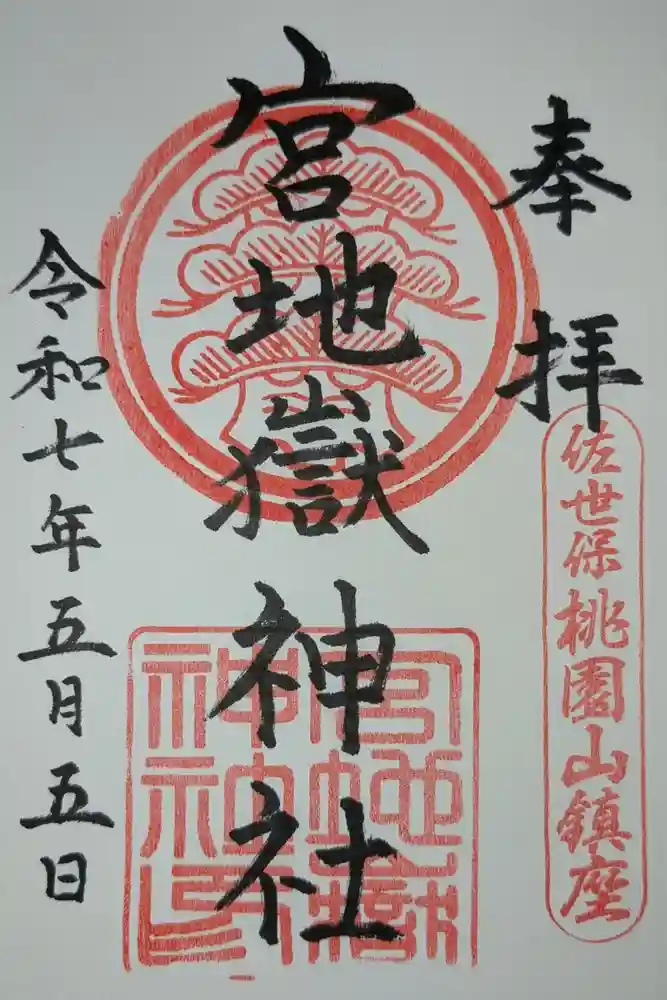 奉拝
佐世保桃園山鎮座
宮地嶽神社
宮地嶽神社神印
令和七年五月五日